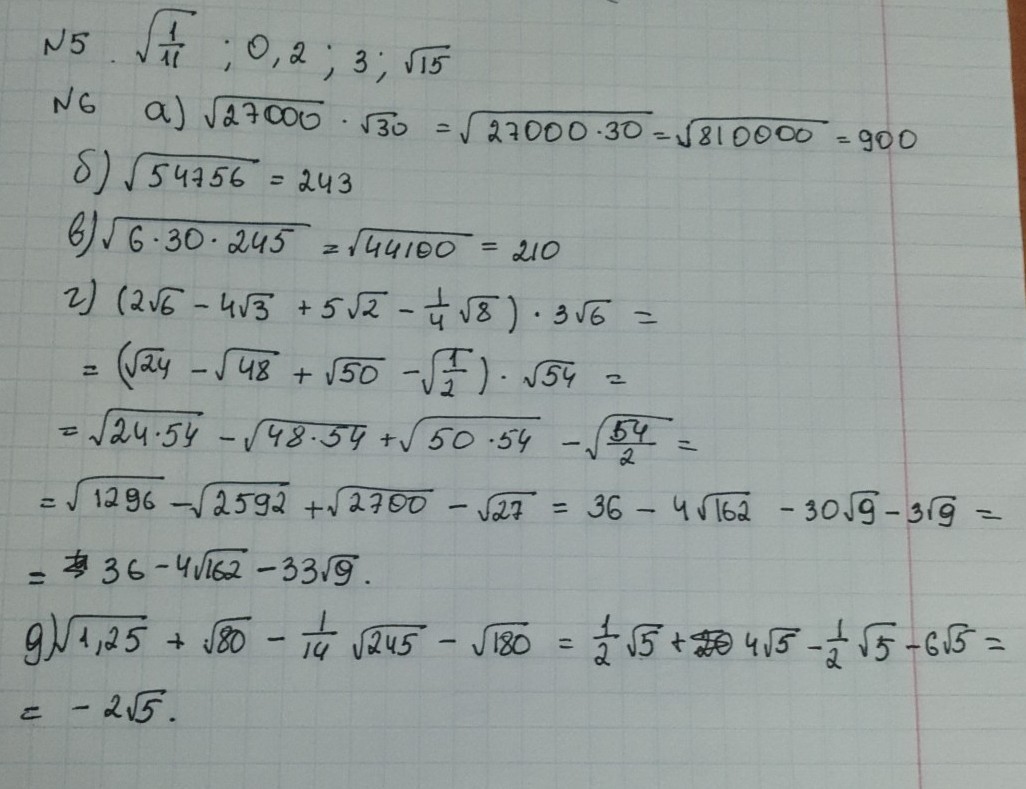 N5. √(1/11) ; 0,2 ; 3 ; √15
N6 а) √27000 · √30 = √(27000·30) = √810000 = 900
б) √54756 = 243
в) √(6·30·245) = √44100 = 210
г) (2√6 - 4√3 + 5√2 - 1/4 √8) · 3√6 =
= (√24 - √48 + √50 - √(1/2)) · √54 =
= √(24·54) - √(48·54) + √(50·54) - √(54/2) =
= √1296 - √2592 + √2700 - √27 = 36 - 4√162 - 30√9 - 3√9 =
= 36 - 4√162 - 33√9.
д) √1,25 + √80 - 1/14 √245 - √180 = 1/2 √5 + 4√5 - 1/2 √5 - 6√5 =
= - 2√5.